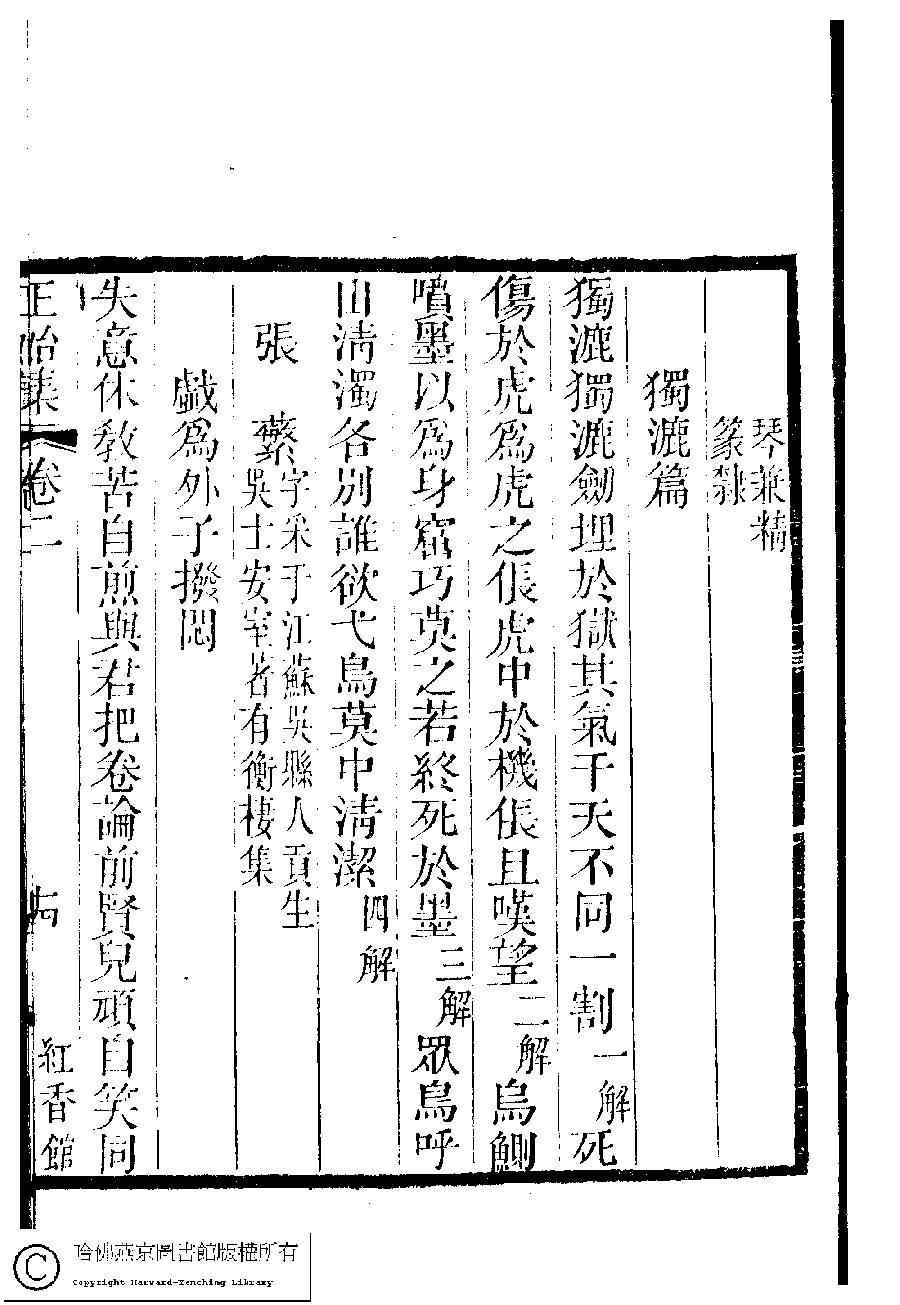 琴兼精
篆隸
獨漉篇
獨漉獨漉劒埋於獄其氣干天不同一割一解死
傷於虎爲虎之倀虎中於機倀且嘆望二解烏鰂
噴墨以爲身窟巧莫之若終死於墨三解眾鳥呼
山清濁各別誰欲弋鳥莫中清潔四解
張蘩字采于江蘇吳縣人貢生
吳士安室著有衡棲集
戲爲外子撥悶
失意休教苦自煎與君把卷論前賢兒頑自笑同
正始集 卷二 十四 紅香館
哈佛燕京圖書館版權所有
Copyright Harvard-Yenching Library